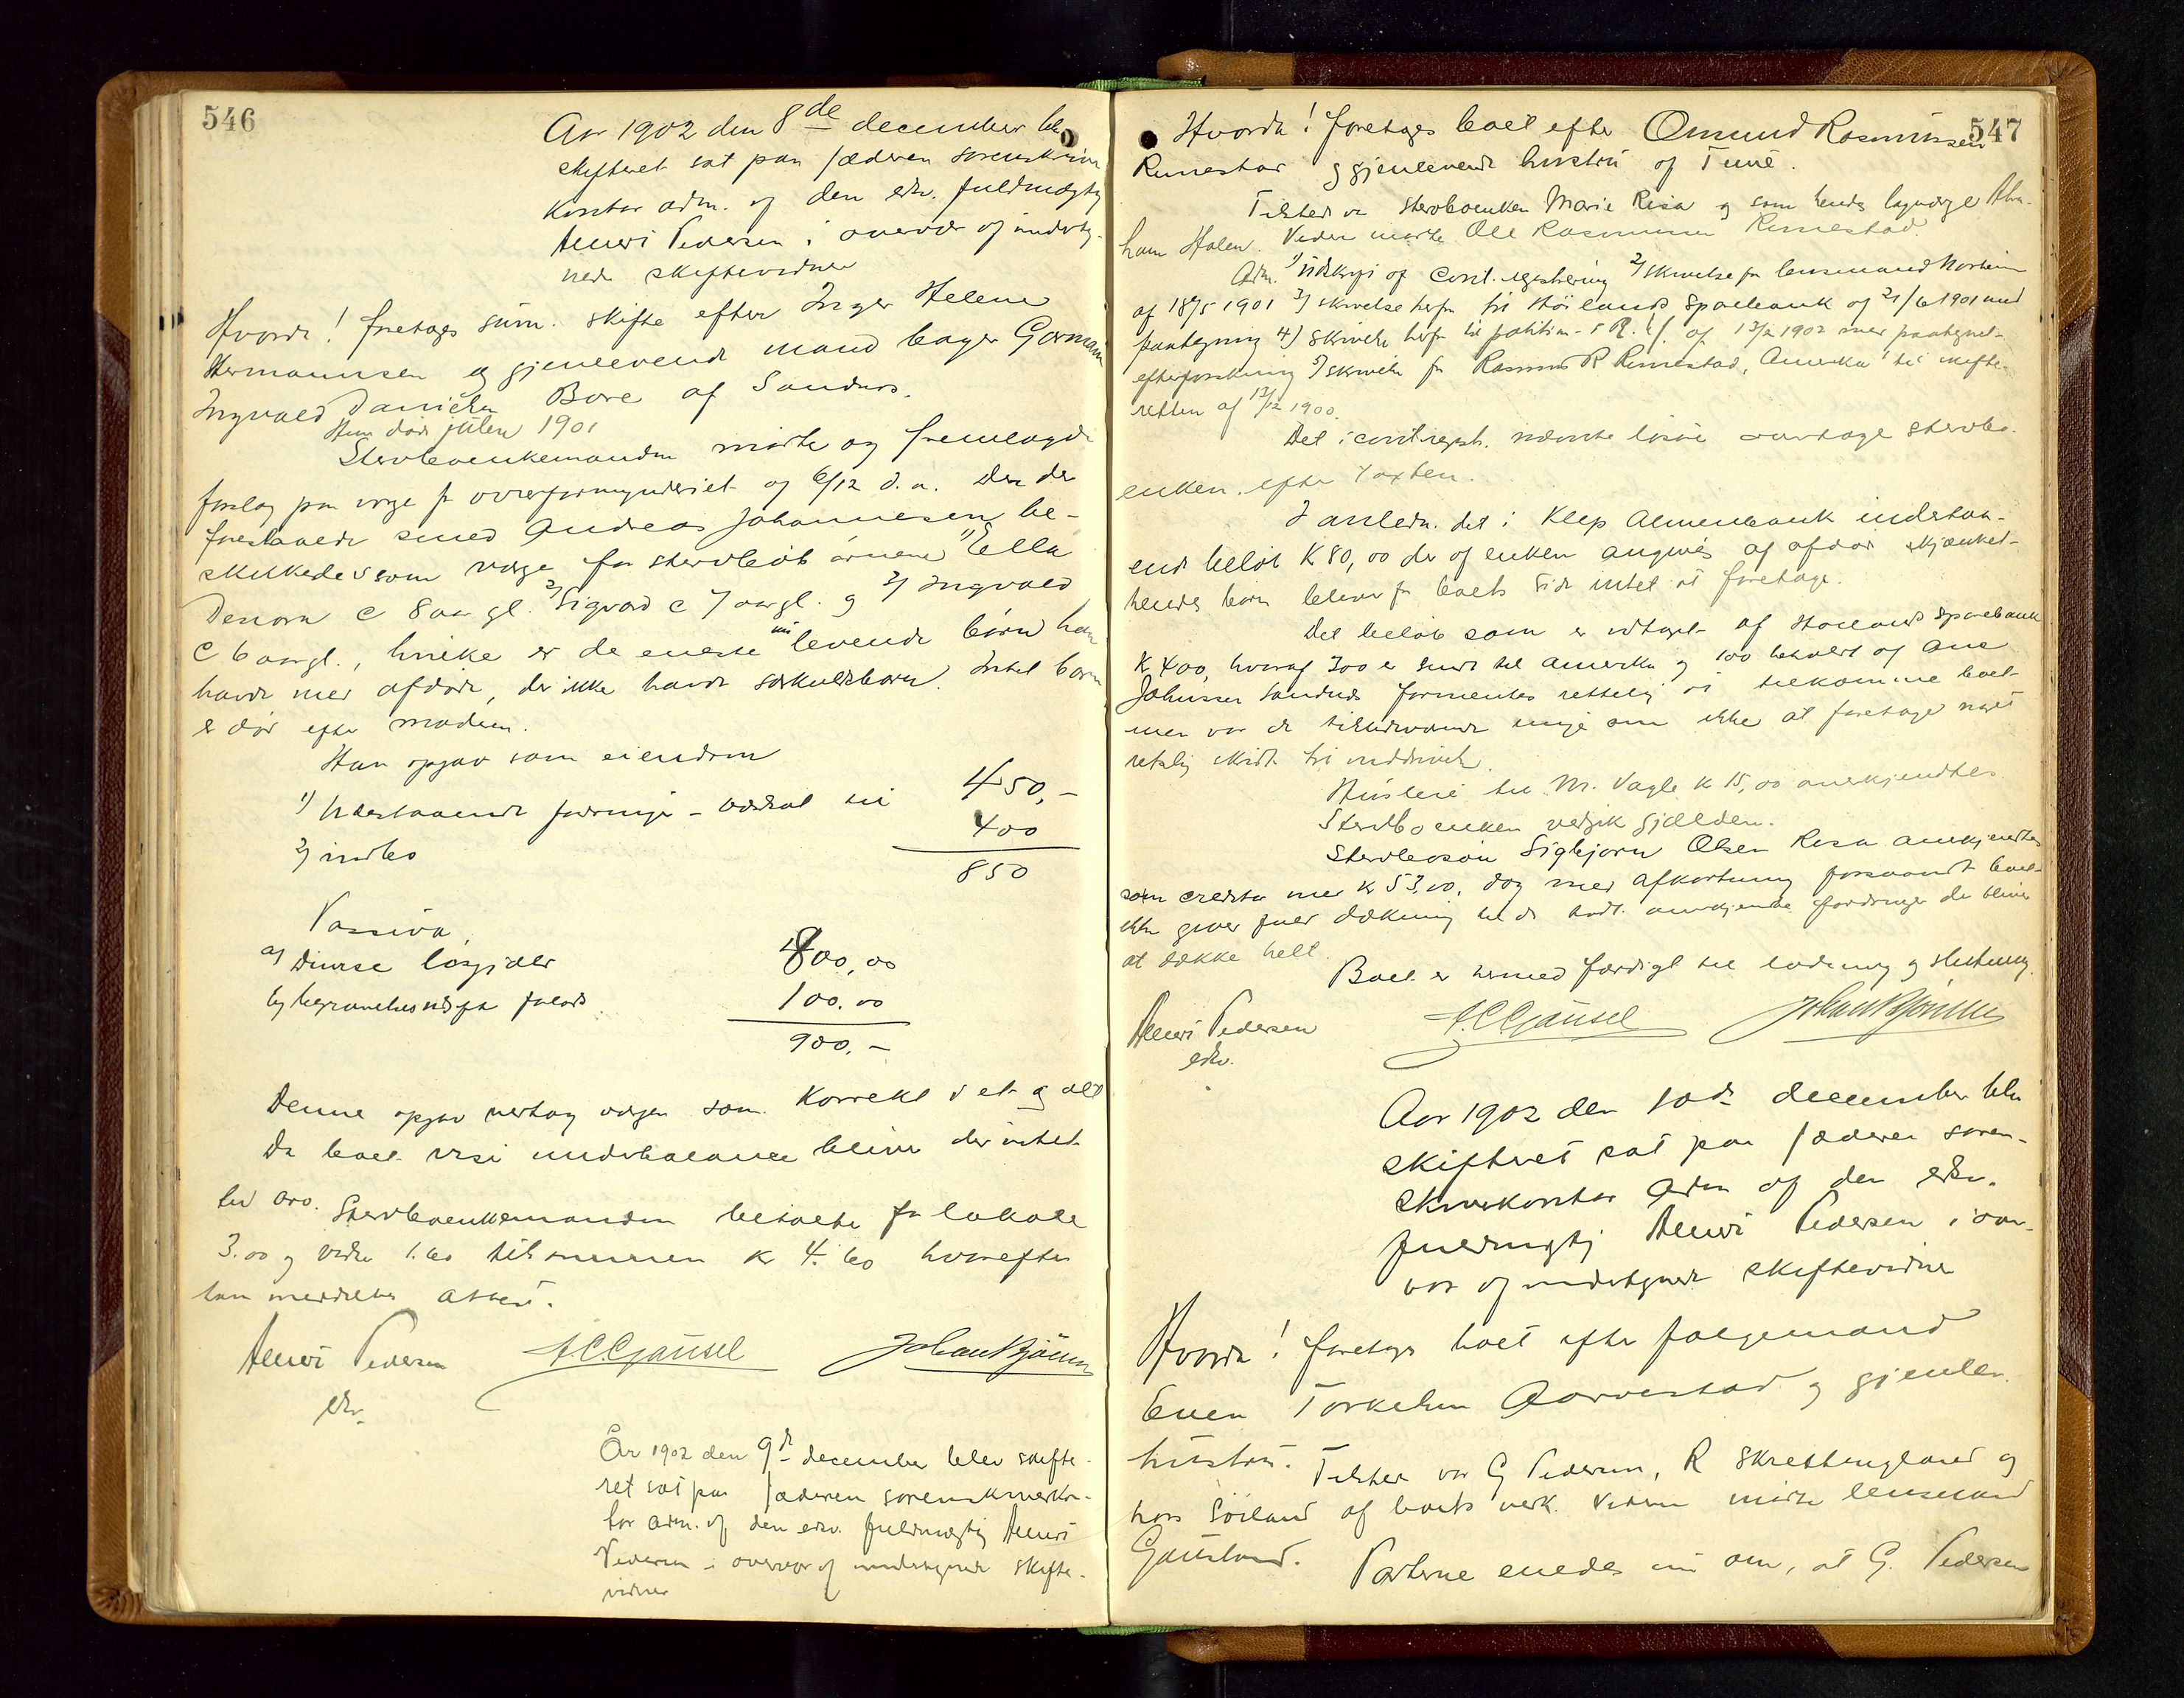 546
Aar 1902 den 8de december blev
skifteret sat paa Jæderen sorenskriver
kontor adm. af den edsv. fuldmægtig
Henri Pedersen i overvær af underteg-
nede skiftevidner
Hvorda! foretoges sum. skifte efter Inger Helene
Hermannsen og gjenlevende mand bager Gorman
Ingvald Danielsen Bore af Sandnes.
Hun døde julen 1901
Stervboenkemanden mødte og fremlagde
forslag paa verge fr overformynderiet af 6/12 d.a. Den der
foreslaaede smed Andreas Johannesen be-
skikkedes som verge for stervbobørnene 1) Ella
Denora c 8 aar gl. 2) Sigvard c 7 aar gl. og 3) Ingvald
c 6 aar gl., hvilke er de eneste nu levende børn han
havde med afdøde, der ikke havde særkuldsbørn. Intet barn
er død efter moderen.
Han opgav som eiendom
1) Udestaaende fordringer - værdsat til 450,-
2) indbo 400
850
Passiva,
a) Diverse løsgjæld 800,00
b) begravelsesudgifter 100.00
900.-
Denne opgav vertog vergen som korrekt i et og alt
Da boet viser underbalance bliver der intet
til arv. Stervboenkemanden betalte for lokale
3.00 og vidner 1.60 tilsammen kr 4.60 hvorefter
han meddeltes attest.
Henri Pedersen A.C. Gausel Johan Bjørnsen
edsv.
År 1902 den 9de december blev skifte-
ret sat paa Jæderen sorenskriverkon-
tor adm. af den edsv. fuldmægtig Henri
Pedersen i overvær af undertegnede skifte-
vidner
547
Hvorda! foretoges boet efter Omund Rasmussen
Rimestad og gjenlevende hustru af Time.
Tilstede var stervboenken Marie Risa og som hendes lagverge Abra-
ham Holen. Videre mødte Ole Rasmussen Rimestad
Adm. 1) Udskrift af cont. registrering 2) skrivelse fra lensmand Norheim
af 18/5 1901 3) skrivelse herfra til Høilands Sparebank af 21/6 1901 med
paategning 4) skrivelse herfra til af 13/2 1902 med paategnet
efterforskning 5) skrivelse fra Rasmus R Rimestad, Amerika til skifte-
retten af 13/12 1900.
Det i cont. regist. nævnte løsøre overtoges stervbo-
enken efter Taxten.
I anledn. det i Klep Almenbank indestaa-
ende beløb K 80,00 der af enken angives af afdøde skjænket
hendes børn bliver fra boets side intet at foretage.
Det beløb som er udtaget af Høilands Sparebank
K 400, hvoraf 300 er sendt til Amerika og 100 betalt af Ane
Johnsen Sandnes formentes rettelig at tilkomme boet
men var de tilstedeværende enige om ikke at foretage noget
retslig skridt til inddrivelse.
Husleie til M. Vagle K 15,00 anerkjendtes
Sterboenken vedgik gjælden.
Stervbosøn Sigbjørn Olsen Risa anerkjendtes
som creditor med kr 53.00, dog med afkortning forsaavidt boet
ikke giver fuld dækning til de andre anerkjendte fordringer der bliver
at dække helt.
Boet er hermed færdigt til lodning og slutning.
Henri Pedersen A.C. Gausel Johan Bjørnsen
edsv.
Aar 1902 den 10de december blev
skifteret sat paa Jæderen soren-
skriverkontor adm af den edsv.
fuldmægtig Henri Pedersen i over-
vær af undertegnede skiftevidner
Hvorda! foretoges boet efter folgemand
Even Torkelsen Aarrestad og gjenlev.
hustru. Tilstede var G Pedersen, R Skrettingland og
hans Søiland af boets verk. Videre mødte lensmand
Gausland. Parterne enedes nu om, at G. Pedersen